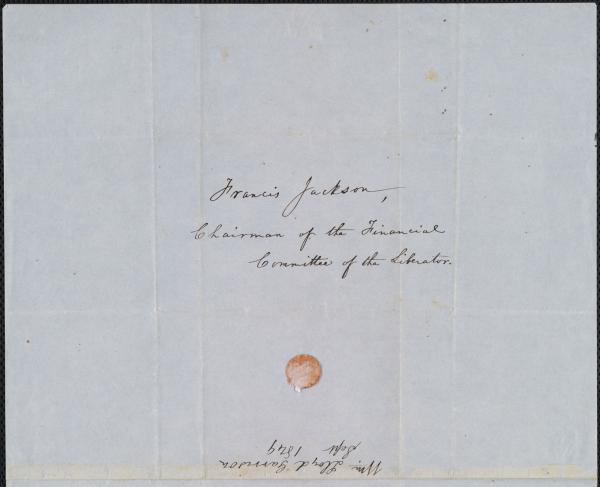 Francis Jackson,
Chairman of the Financial
Committee of the Liberator.
Wm. Lloyd Garrison
Sept 1849